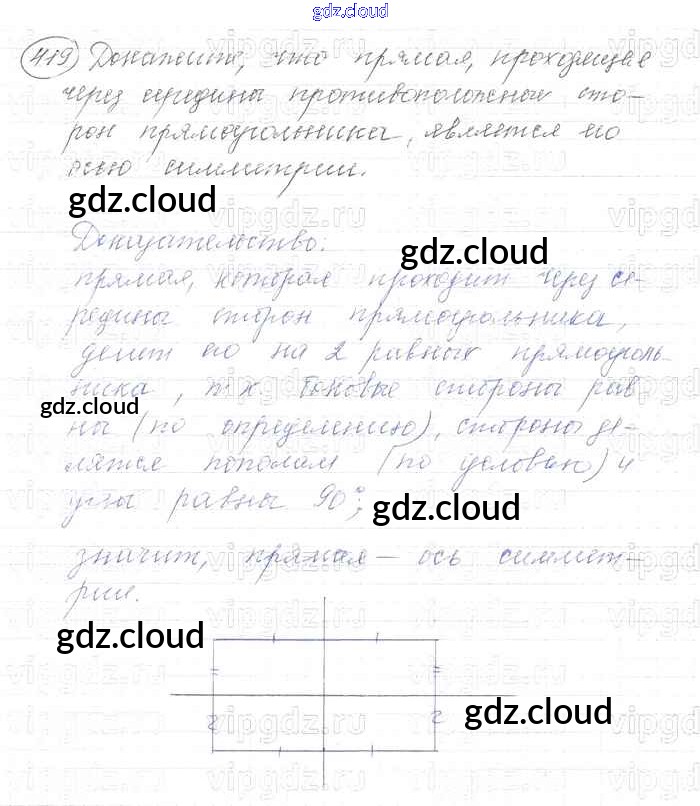 gdz.cloud
419 Докажите, что прямая, проходящая
через середины противоположных сто-
рон прямоугольника, является его
осью симметрии.
gdz.cloud
Доказательство:
gdz.cloud
прямая, которая проходит через се-
редины сторон прямоугольника,
делит его на 2 равных прямоуголь-
ника, т.к. боковые стороны рав
gdz.cloud
ны (по определению), стороны де-
лятся пополам (по условию) и
углы равны 90°;
gdz.cloud
значит, прямая - ось симмет-
рии.
gdz.cloud
gdz.cloud
vipgdz.ru